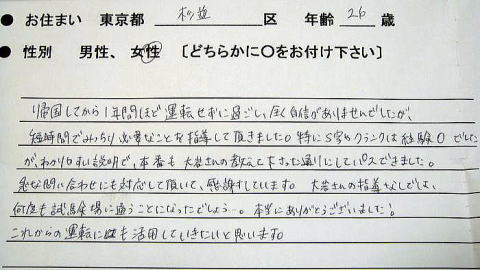 ● お住まい 東京都 杉並 区 年齢 26 歳
● 性別 男性、女性 〔どちらかに〇をお付け下さい〕
帰国してから1年間ほど運転せずに過ごし、全く自信がありませんでしたが、
短時間でみっちり必要なことを指導して頂きました。特にS字やクランクは経験0でした
が、わかりやすい説明で、本番も大岩さんの教えて下さった通りにしてパスできました。
急な問い合わせにも対応して頂いて、感謝しています。大岩さんの指導なしでは、
何度も試験会場に通うことになったでしょう…。本当にありがとうございました!
これからの運転にも活用していきたいと思います。